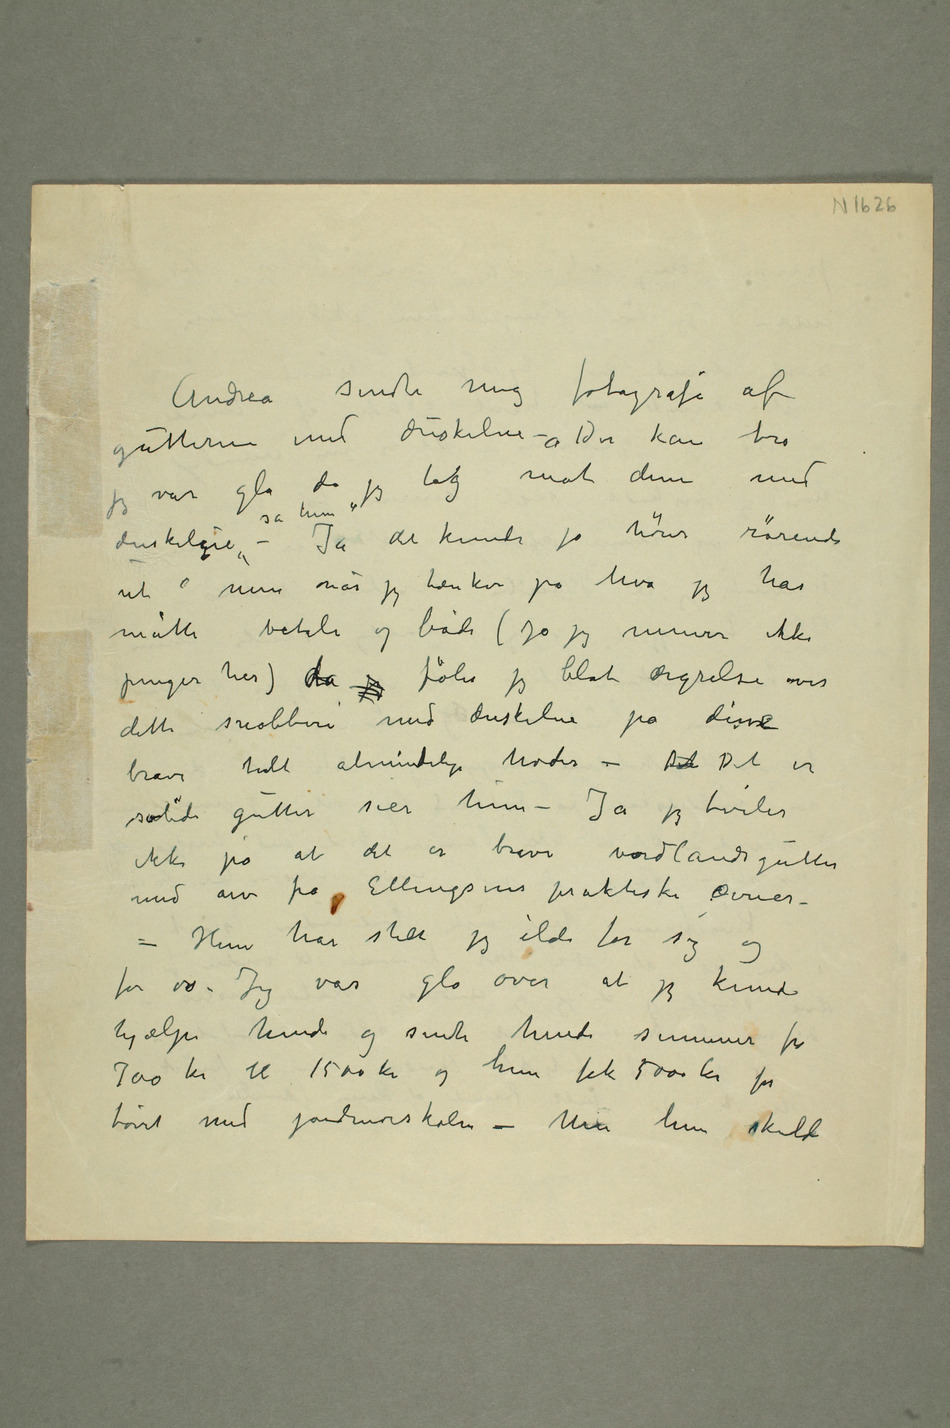 N 1626
Andrea sendte mig fotografi af
gutterne med duskelue – Du kan tro
jeg var gla da jeg tog mot dem med
så hun"
duskelue„ – Ja det kunde jo høres rørende
ut men når jeg tænker på hva jeg har
måtte betale og bøde (jo jeg nævner ikke
penger her) da jeg føler jeg blot ærgrelse over
dette snobberi med duskelue på disse
brave helt almindelige hoder – Det Det er
solide gutter sier hun – Ja jeg tviler
ikke på at det er brave nordlandsgutter
med arv fra Ellingsens praktiske evner –
– Hun har stelt jeg ilde for sig og
for os. Jeg var gla over at jeg kunde
hjælpe hende og sendte hende summer fra
700 kr til 1500 kr og hun fik 5000 kr for
tøvet med jordmorskolen – Men hun skuld